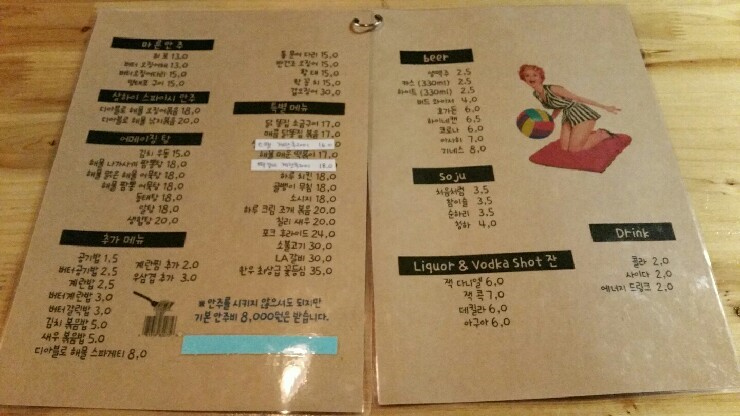 마른안주
쥐포 13,0
버터 오징어 13,0
버터오징어다리 15,0
먹태포 구이 15,0
상하이 스파이시 안주
디아블로 해물 오징어볶음 18,0
디아블로 해물 낙지볶음 20,0
어메이징 탕
김치 우동 15,0
해물 나가사끼 짬뽕탕 18,0
해물 맑은 해물 어묵탕 18,0
해물 짬뽕 어묵탕 18,0
동태탕 18,0
알탕 18,0
생합탕 20,0
추가 메뉴
공기밥 1,5
버터공기밥 2,5
계란탕 2,5
버터계란밥 3,0
버터갈릭밥 3,0
김치 볶음밥 5,0
새우 볶음밥 5,0
디아블로 해물 스파게티 8,0
계란찜 추가 2,0
우삼겹 추가 3,0
통 문어 다리 15,0
반건조 오징어 15,0
황태 15,0
먹꽁치 15,0
겹오징어 30,0
특별 메뉴
닭 똥집 소금구이 17,0
매콤 닭똥집 볶음 17,0
해물 매운 떡볶이 17,0
하루 치킨 18,0
골뱅이 무침 18,0
소시지 18,0
하루 크림 조개 볶음 20,0
칠리 새우 20,0
포크 후라이드 24,0
소불고기 30,0
LA갈비 30,0
한우 최상급 꽃등심 35,0
※ 안주를 시키지 않으셔도 되지만
기본 안주비 8,000원은 받습니다.
beer
생맥주 2.5
카스 (330ml) 2.5
하이트 (330ml) 2.5
버드 와이저 4.0
호가든 6.0
하이네켄 6.5
코로나 6.0
아사히 7.0
기네스 8.0
Soju
처음처럼 3.5
참이슬 3.5
순하리 3.5
청하 4.0
Liquor & Vodka Shot 잔
잭 다니엘 6,0
잭 콕 7,0
데킬라 6,0
아구아 6,0
Drink
콜라 2.0
사이다 2.0
에너지 드링크 2.0